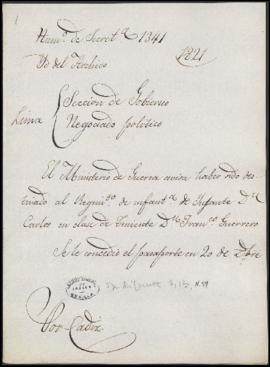 Num.º de Secret.ª 1341
Yd del Archivo
1821
Lima
Seccion de Gobierno
Negociado político
El Ministerio de Guerra avisa haber sido des-
tinado al Regim.to de infant.ª de Infante D.n
Carlos en clase de Teniente D.n Fran.co Guerrero
Se le concedió el pasaporte en 20 de
Por Cadiz